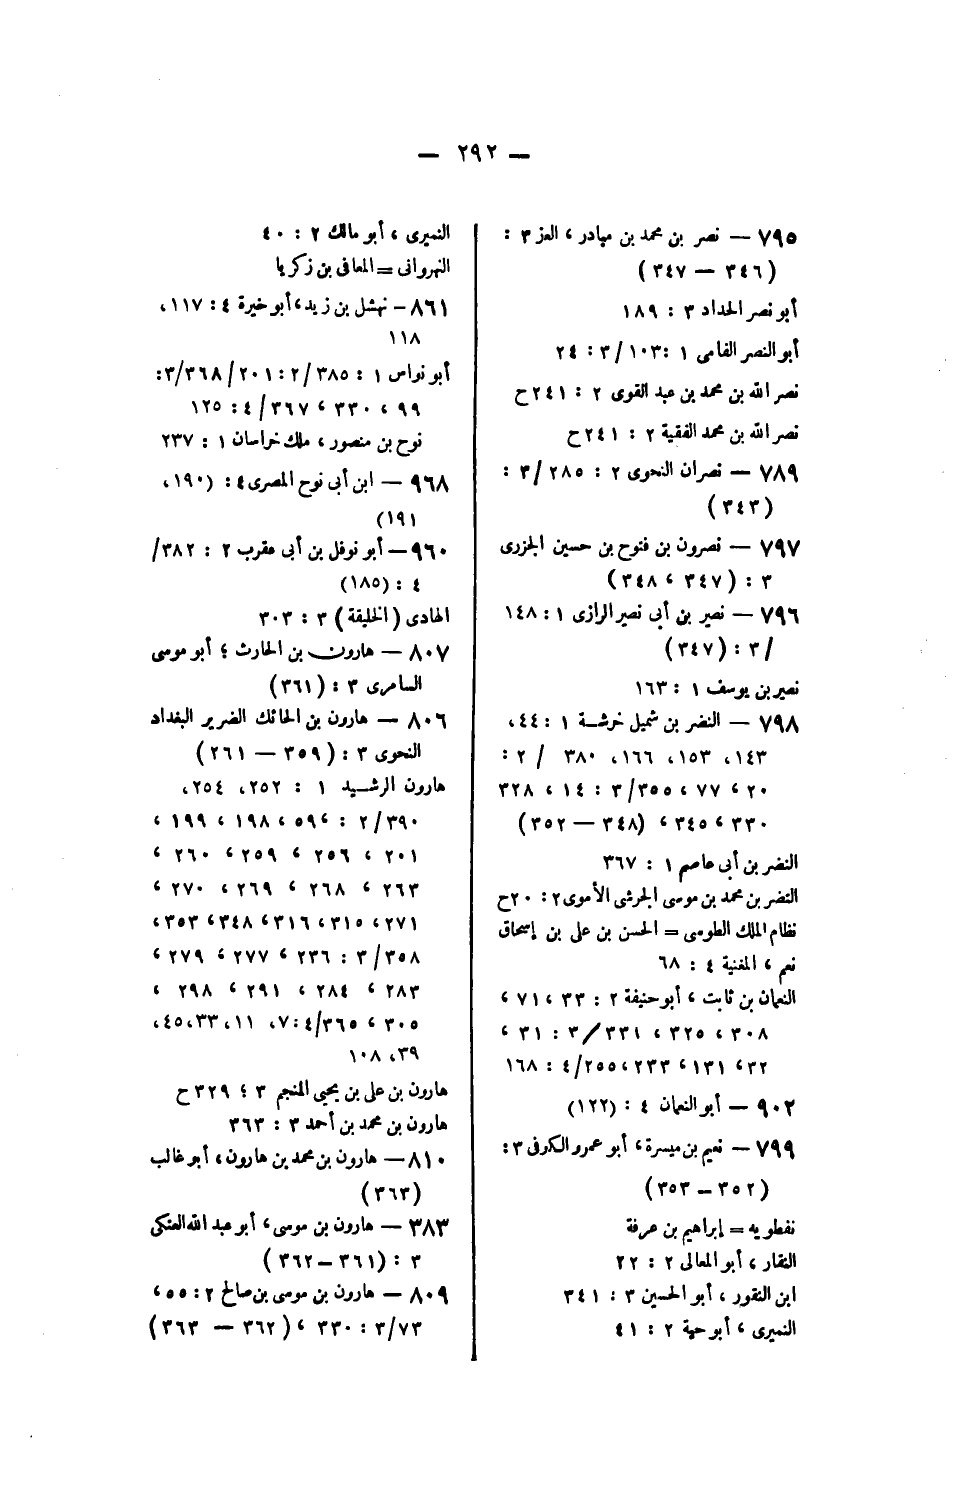 — ٢٩٢ —
٧٩٥ — نصر بن محمد بن مبادر ، العز ٣ :
(٣٤٦ — ٣٤٧)
أبو نصر الحداد ٣ : ١٨٩
أبو النصر الفامى ١ : ١٠٣/ ٣ : ٢٤
نصر الله بن محمد بن عبد القوى ٢ : ٢٤١ ح
نصر الله بن محمد الفقية ٢ : ٢٤١ ح
٧٨٩ — نصران النحوى ٢ : ٢٨٥ / ٣ :
(٣٤٣)
٧٩٧ — نصرون بن فتوح بن حسين الجزرى
٣ : (٣٤٧ ، ٣٤٨)
٧٩٦ — نصير بن أبى نصير الرازى ١ : ١٤٨
/ ٣ : (٣٤٧)
نصير بن يوسف ١ : ١٦٣
٧٩٨ — النضر بن شميل خرشة ١ : ٤٤،
١٤٣، ١٥٣، ١٦٦، ٣٨٠ / ٢ :
٢٠ ، ٧٧ ، ٣٥٥/ ٣ : ١٤ ، ٣٢٨
٣٣٠ ، ٣٤٥ ، (٣٤٨ — ٣٥٢)
النضر بن أبى عاصم ١ : ٣٦٧
النضر بن محمد بن موسى الجرشى الأموى ٢ : ٢٠ ح
نظام الملك الطوسى = الحسن بن على بن إسحاق
نعم ، المغنية ٤ : ٦٨
النعمان بن ثابت ، أبو حنيفة ٢ : ٣٣ ، ٧١ ،
٣٠٨ ، ٣٢٥ ، ٣٣١ / ٣ : ٣١ ،
٣٢ ، ١٣١ ، ٢٣٣ ، ٢٥٥/ ٤ : ١٦٨
٩٠٢ — أبو النعمان ٤ : (١٢٢)
٧٩٩ — نعيم بن ميسرة ، أبو عمرو الكوفى ٣ :
(٣٥٢ — ٣٥٣)
نفطويه = إبراهيم بن عرفة
النقار ، أبو المعالى ٢ : ٢٢
ابن النقور ، أبو الحسين ٣ : ٣٤١
النميرى ، أبو حية ٢ : ٤١
النميرى ، أبو مالك ٢ : ٤٠
النهروانى = المعافى بن زكريا
٨٦١ — نهشل بن زيد ، أبو خيرة ٤ : ١١٧،
١١٨
أبو نواس ١ : ٣٨٥ / ٢ : ٢٠١ / ٣/٣٦٨ :
٩٩ ، ٣٣٠ ، ٣٦٧ / ٤ : ١٢٥
نوح بن منصور ، ملك خراسان ١ : ٢٣٧
٩٦٨ — ابن أبى نوح المصرى ٤ : (١٩٠،
١٩١)
٩٦٠ — أبو نوفل بن أبى عقرب ٢ : ٣٨٢/
٤ : (١٨٥)
الهادى (الخليفة) ٣ : ٣٠٣
٨٠٧ — هارون بن الحارث ؛ أبو موسى
السامرى ٣ : (٣٦١)
٨٠٦ — هارون بن الحائك الضرير البغداد
النحوى ٣ : (٣٥٩ — ٢٦١)
هارون الرشيد ١ : ٢٥٢، ٢٥٤،
٣٩٠/ ٢ : ٥٩ ، ١٩٨ ، ١٩٩ ،
٢٠١ ، ٢٥٦ ، ٢٥٩ ، ٢٦٠ ،
٢٦٣ ، ٢٦٨ ، ٢٦٩ ، ٢٧٠ ،
٢٧١ ، ٣١٥ ، ٣١٦ ، ٣٤٨ ، ٣٥٣ ،
٣٥٨/ ٣ : ٢٣٦ ، ٢٧٧ ، ٢٧٩ ،
٢٨٣ ، ٢٨٤ ، ٢٩١ ، ٢٩٨ ،
٣٠٥ ، ٣٦٥/ ٤ : ٧، ١١، ٣٣، ٤٥،
٣٩، ١٠٨
هارون بن على بن يحيى المنجم ٣ ؛ ٣٢٩ ح
هارون بن محمد بن أحمد ٣ : ٣٦٣
٨١٠ — هارون بن محمد بن هارون ، أبو غالب
(٣٦٣)
٣٨٣ — هارون بن موسى ، أبو عبد الله العتكى
٣ : (٣٦١ — ٣٦٢)
٨٠٩ — هارون بن موسى بن صالح ٢ : ٥٥ ،
٧٣/ ٣ : ٣٣٠ ، (٣٦٢ — ٣٦٣)